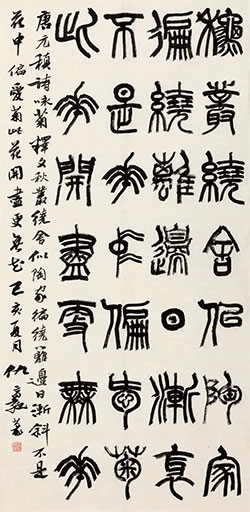 秋叢繞舍佀陶家
徧繞離邊日漸衺
不是華中偏愛菊
此華開盡更無華
唐元稹詩咏菊釋文秋叢繞舍似陶家徧繞籬邊日漸斜不是
花中偏愛菊此花開盡更無花己亥夏月仇